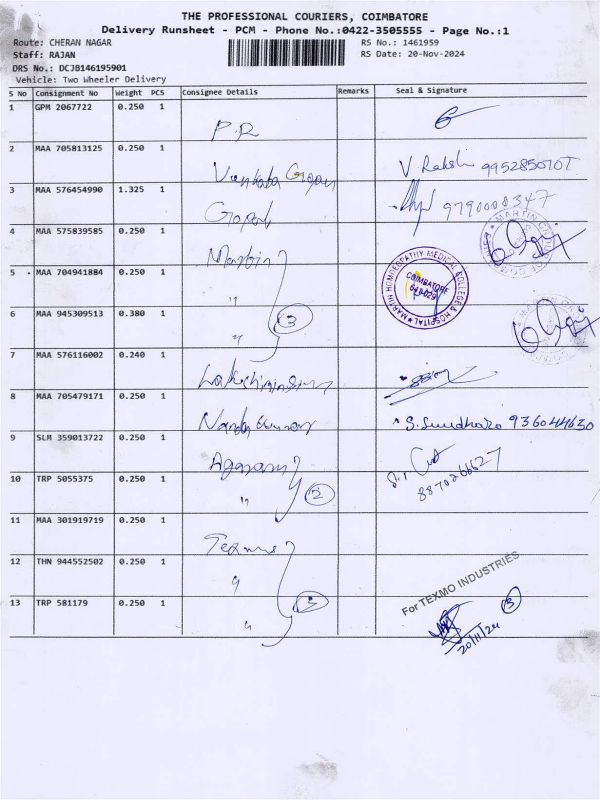 THE PROFESSIONAL COURIERS, COIMBATORE
Delivery Runsheet - PCM - Phone No.:0422-3505555 - Page No.:1
Route: CHERAN NAGAR RS No.: 1461959
Staff: RAJAN RS Date: 20-Nov-2024
DRS No.: DCJB146195901
Vehicle: Two Wheeler Delivery
S No Consignment No Weight PCS Consignee Details Remarks Seal & Signature
1 GPM 2067722 0.250 1
P.R
2 MAA 705813125 0.250 1
V. Rakshi
3 MAA 576454990 1.325 1
9790000347
4 MAA 575839585 0.250 1
Martin
5 MAA 704941884 0.250 1
"
MARTIN HOMOEOPATHY MEDICAL COLLEGE & HOSPITAL
COIMBATORE
6 MAA 945309513 0.380 1
" 3
7 MAA 576116002 0.240 1
8 MAA 705479171 0.250 1
9 SLM 359013722 0.250 1
10 TRP 5055375 0.250 1
" 2
11 MAA 301919719 0.250 1
Texmo
12 THN 944552502 0.250 1
"
For TEXMO INDUSTRIES
13 TRP 581179 0.250 1
" 3
3
20/11/24